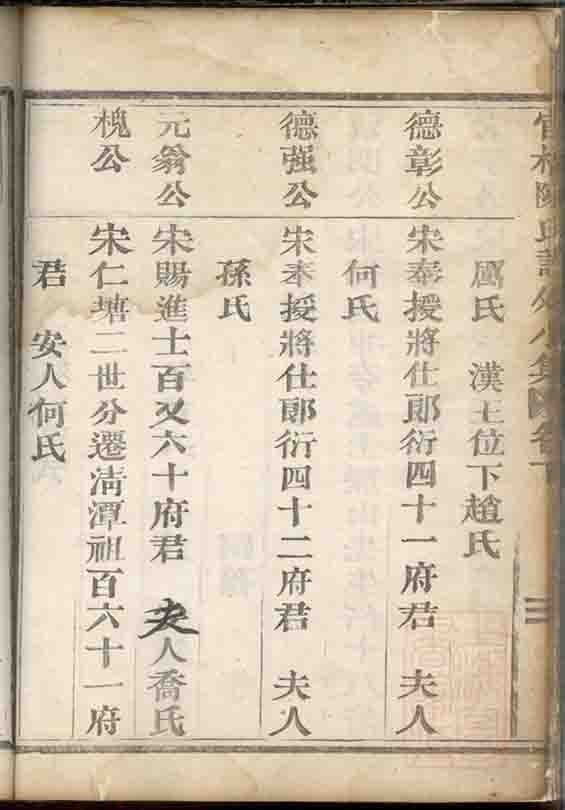 官林陳氏譜分小集 卷下
三
厲氏 漢王位下趙氏
德彰公 宋奉授將仕郎衍四十一府君 夫人
何氏
德强公 宋奉授將仕郎衍四十二府君 夫人
孫氏
元翁公 宋賜進士百又六十府君 夫人喬氏
槐公 宋仁塘二世分遷清潭祖百六十一府
君 安人何氏